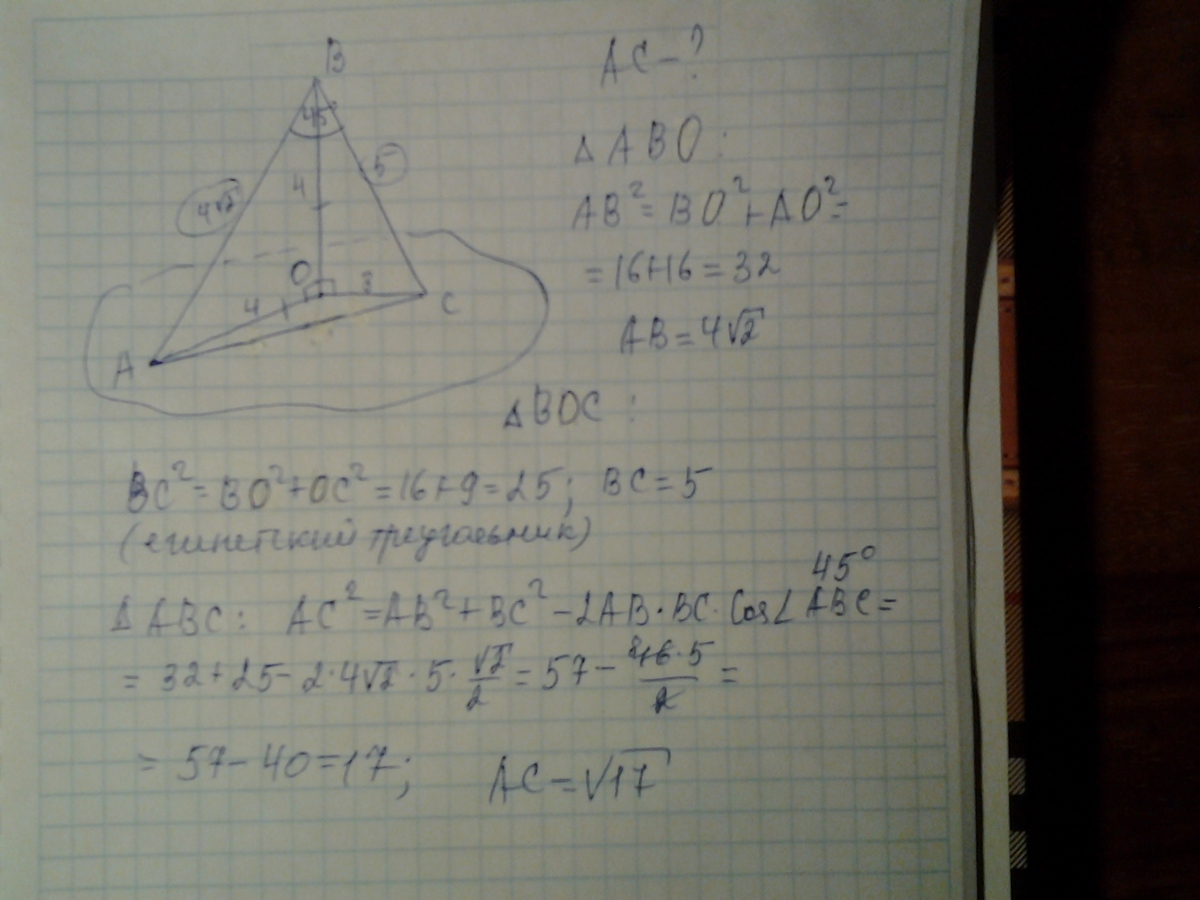 B
45°
4√2
4
5
O
4
3
A
C
AC - ?
Δ ABO :
AB² = BO² + AO² =
= 16+16 = 32
AB = 4√2
ΔBOC :
BC² = BO² + OC² = 16+9 = 25; BC = 5
(египетский треугольник)
45°
Δ ABC: AC² = AB² + BC² - 2AB · BC · Cos∠ABC =
= 32 + 25 - 2·4√2 · 5 · √2/2 = 57 - 8 16·5/2 =
= 57 - 40 = 17; AC = √17